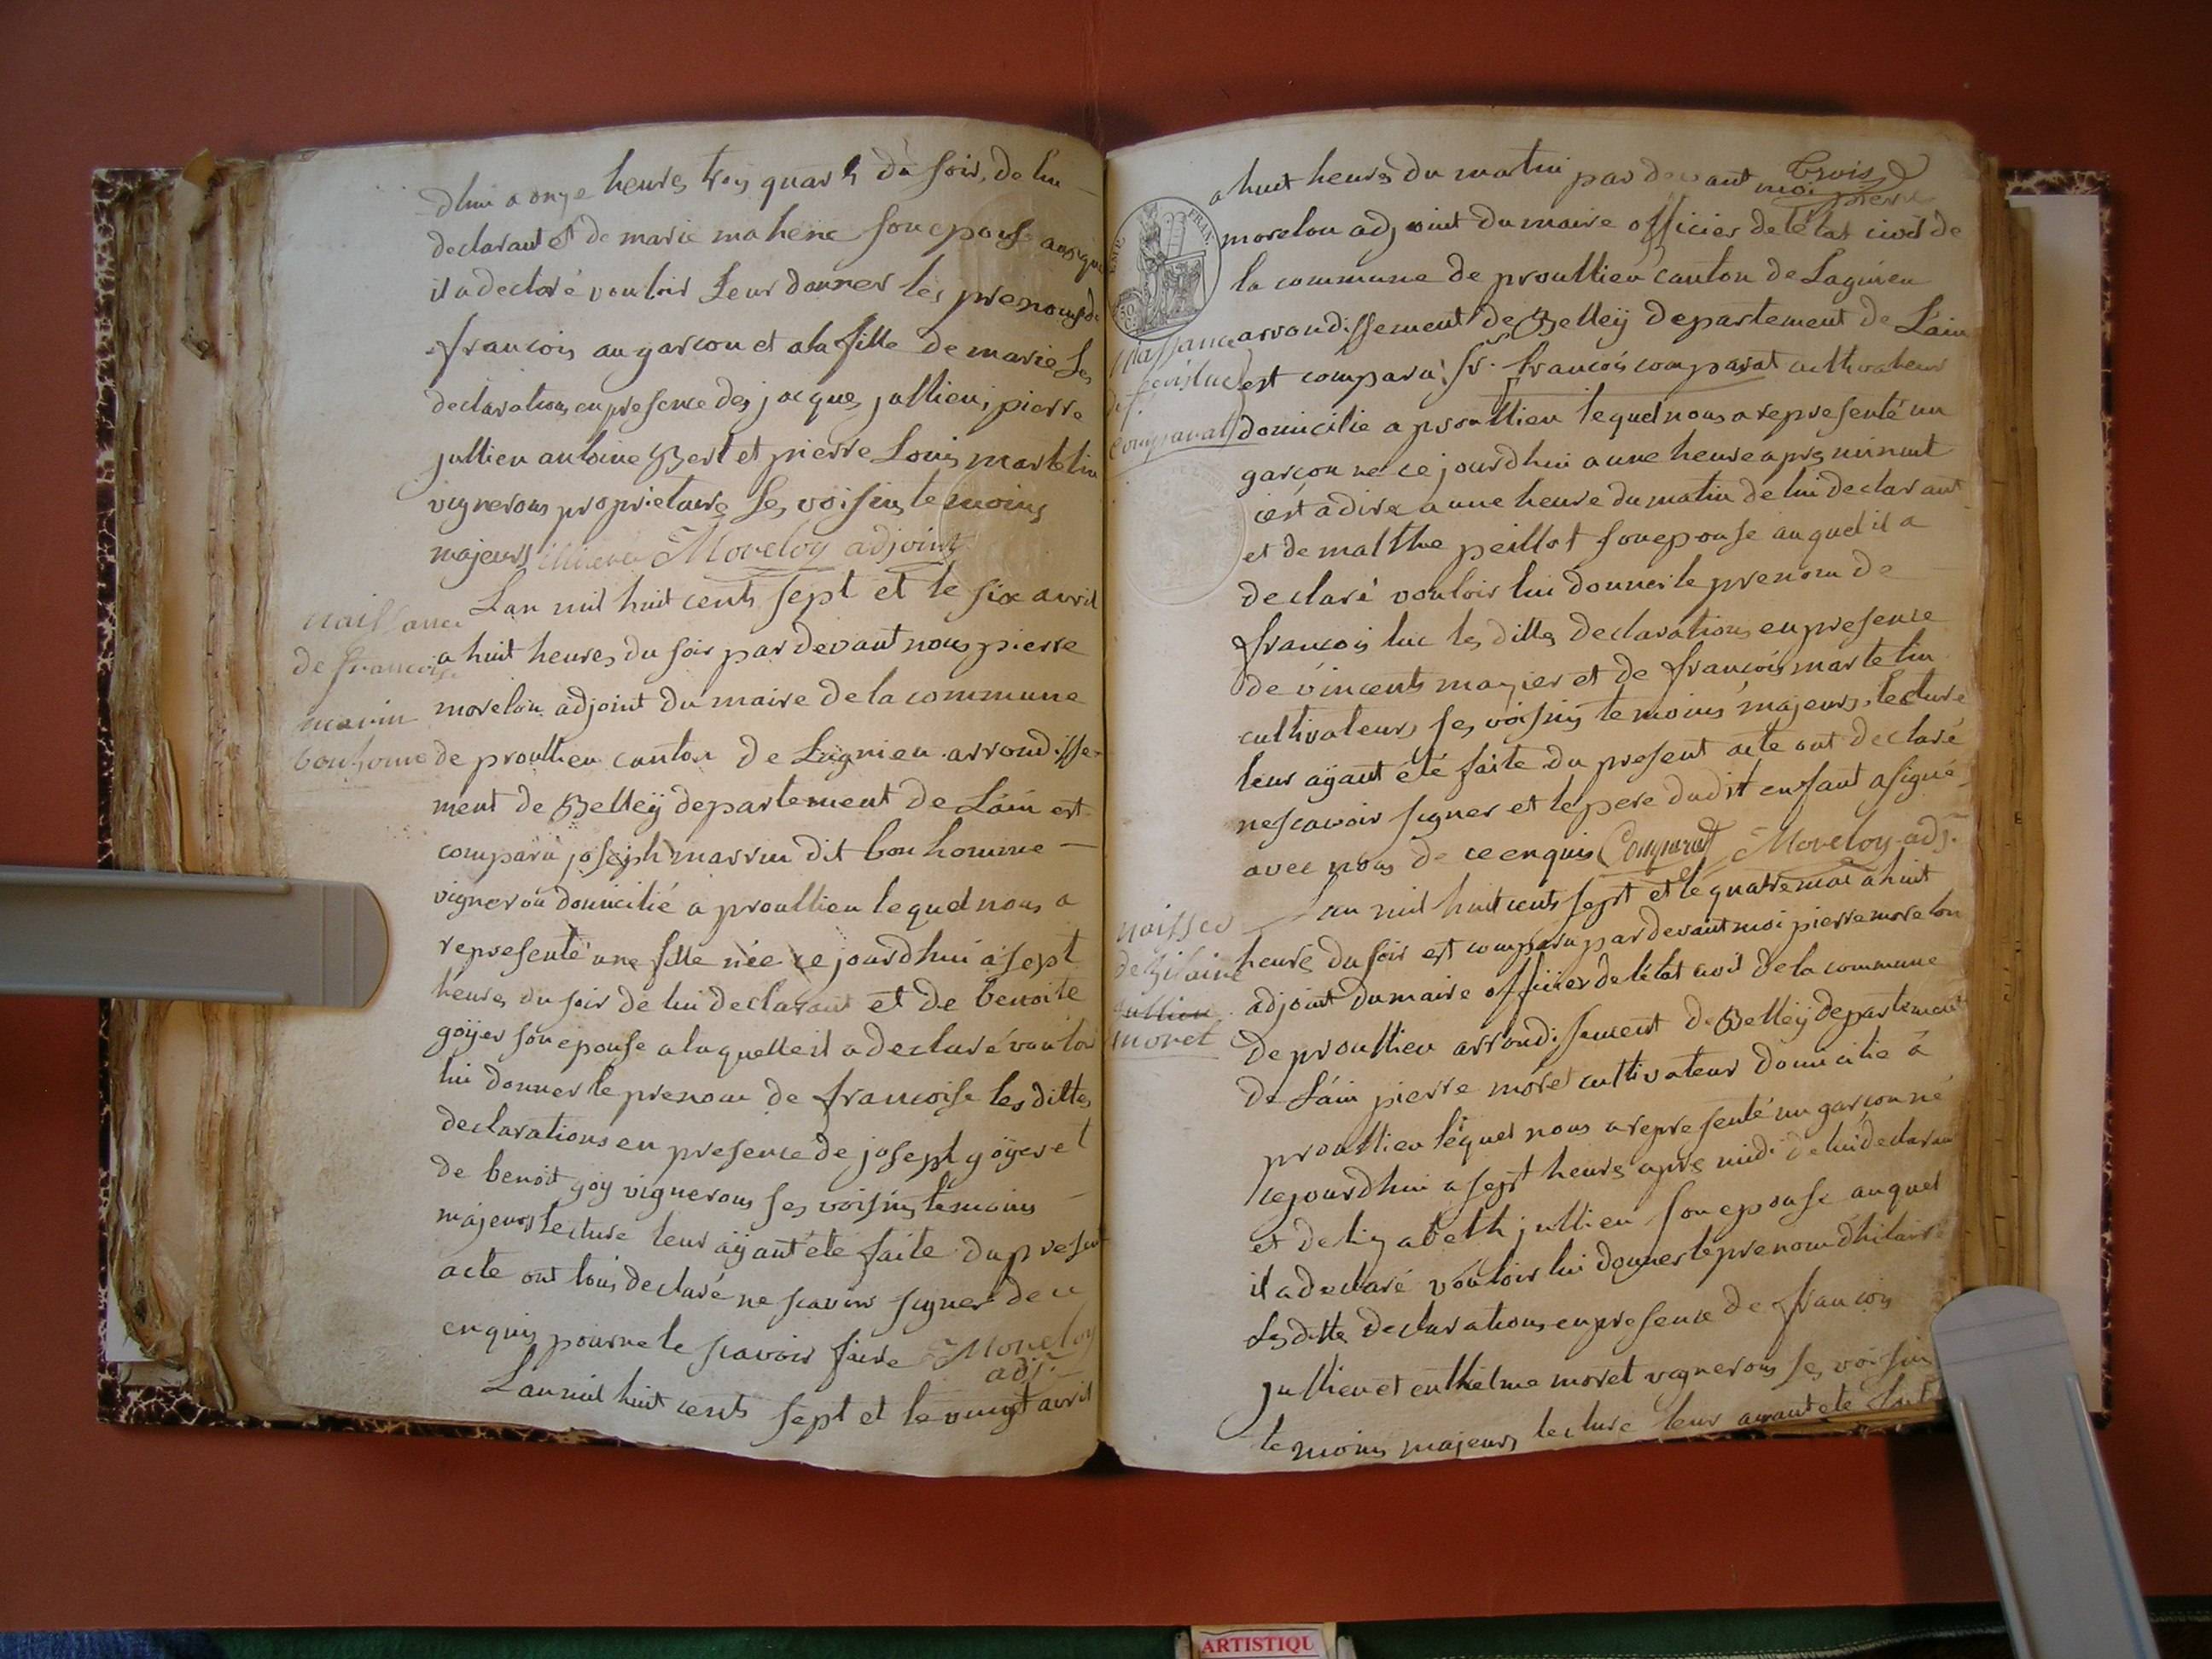 dhui a onze heures trois quarts du soir, de lui
declarant et de marie mahene son epouse auxquels
il a declaré vouloir leur donner les prenoms de
francois au garcon et a la fille de marie Les
declarations en presence des jacques jullien, pierre
jullien antoine Bert et pierre Louis martelin
vignerons proprietaires ses voisins temoins
majeurs Moreloy adjoint
naissance
de francoise
marin
bonhome
Lan mil huit cents sept et le six avril
a huit heures du soir par devant nous pierre
morelon adjoint du maire de la commune
de proullieu canton de Lagnieu arrondisse-
ment de Belleÿ departement de Lain est
comparu joseph marrin dit bonhomme
vigneron domicilié a proullieu lequel nous a
representé une fille née ce jourdhui a sept
heures du soir de lui declarant et de benoite
goÿer son epouse a laquelle il a declaré vouloir
lui donner le prenom de francoise les dittes
declarations en presence de joseph goÿer et
de benoit goy vignerons ses voisins temoins
majeurs lecture leur aÿant été faite du present
acte ont tous declaré ne scavoir signer de ce
enquis pour ne le scavoir faire Moreloy
adj.
Lan mil huit cents sept et le vingt avril
trois
a huit heures du matin par devant moi pierre
morelon adjoint du maire officier de létat civil de
la commune de proullieu canton de Lagnieu
arrondissement de Belleÿ departement de Lain
naissance
de francois luc
comparat
est comparu sr. francois comparat cultivateur
domicilié a proullieu lequel nous a representé un
garcon né ce jourdhui a une heure apres minuit
cest a dire a une heure du matin de lui declarant
et de malthe peillot son epouse auquel il a
declaré vouloir lui donner le prenom de
francois luc les dittes declarations en presence
de vincents mazier et de francois martelin
cultivateurs ses voisins temoins majeurs, lecture
leur aÿant été faite du present acte ont declaré
ne scavoir signer et le pere dudit enfant a signé
avec nous de ce enquis Comparat Moreloy adj.
naissce
de hilaire
jullien
moret
Lan mil huit cents sept et le quatre mai a huit
heures du soir est comparu par devant moi pierre morelon
adjoint du maire officier de létat civil de la commune
de proullieu arrondissement de Belleÿ departement
de Lain pierre moret cultivateur domicilié à
proullieu lequel nous a representé un garcon né
cejourdhui a sept heures apres midi de lui declarant
et de lizabeth jullien son epouse auquel
il a declaré vouloir lui donner le prenom dhilaire
Les ditte declarations en presence de francois
jullien et enthelme moret vignerons ses voisins
temoins majeurs lecture leur ayant eté faite
ARTISTIQU